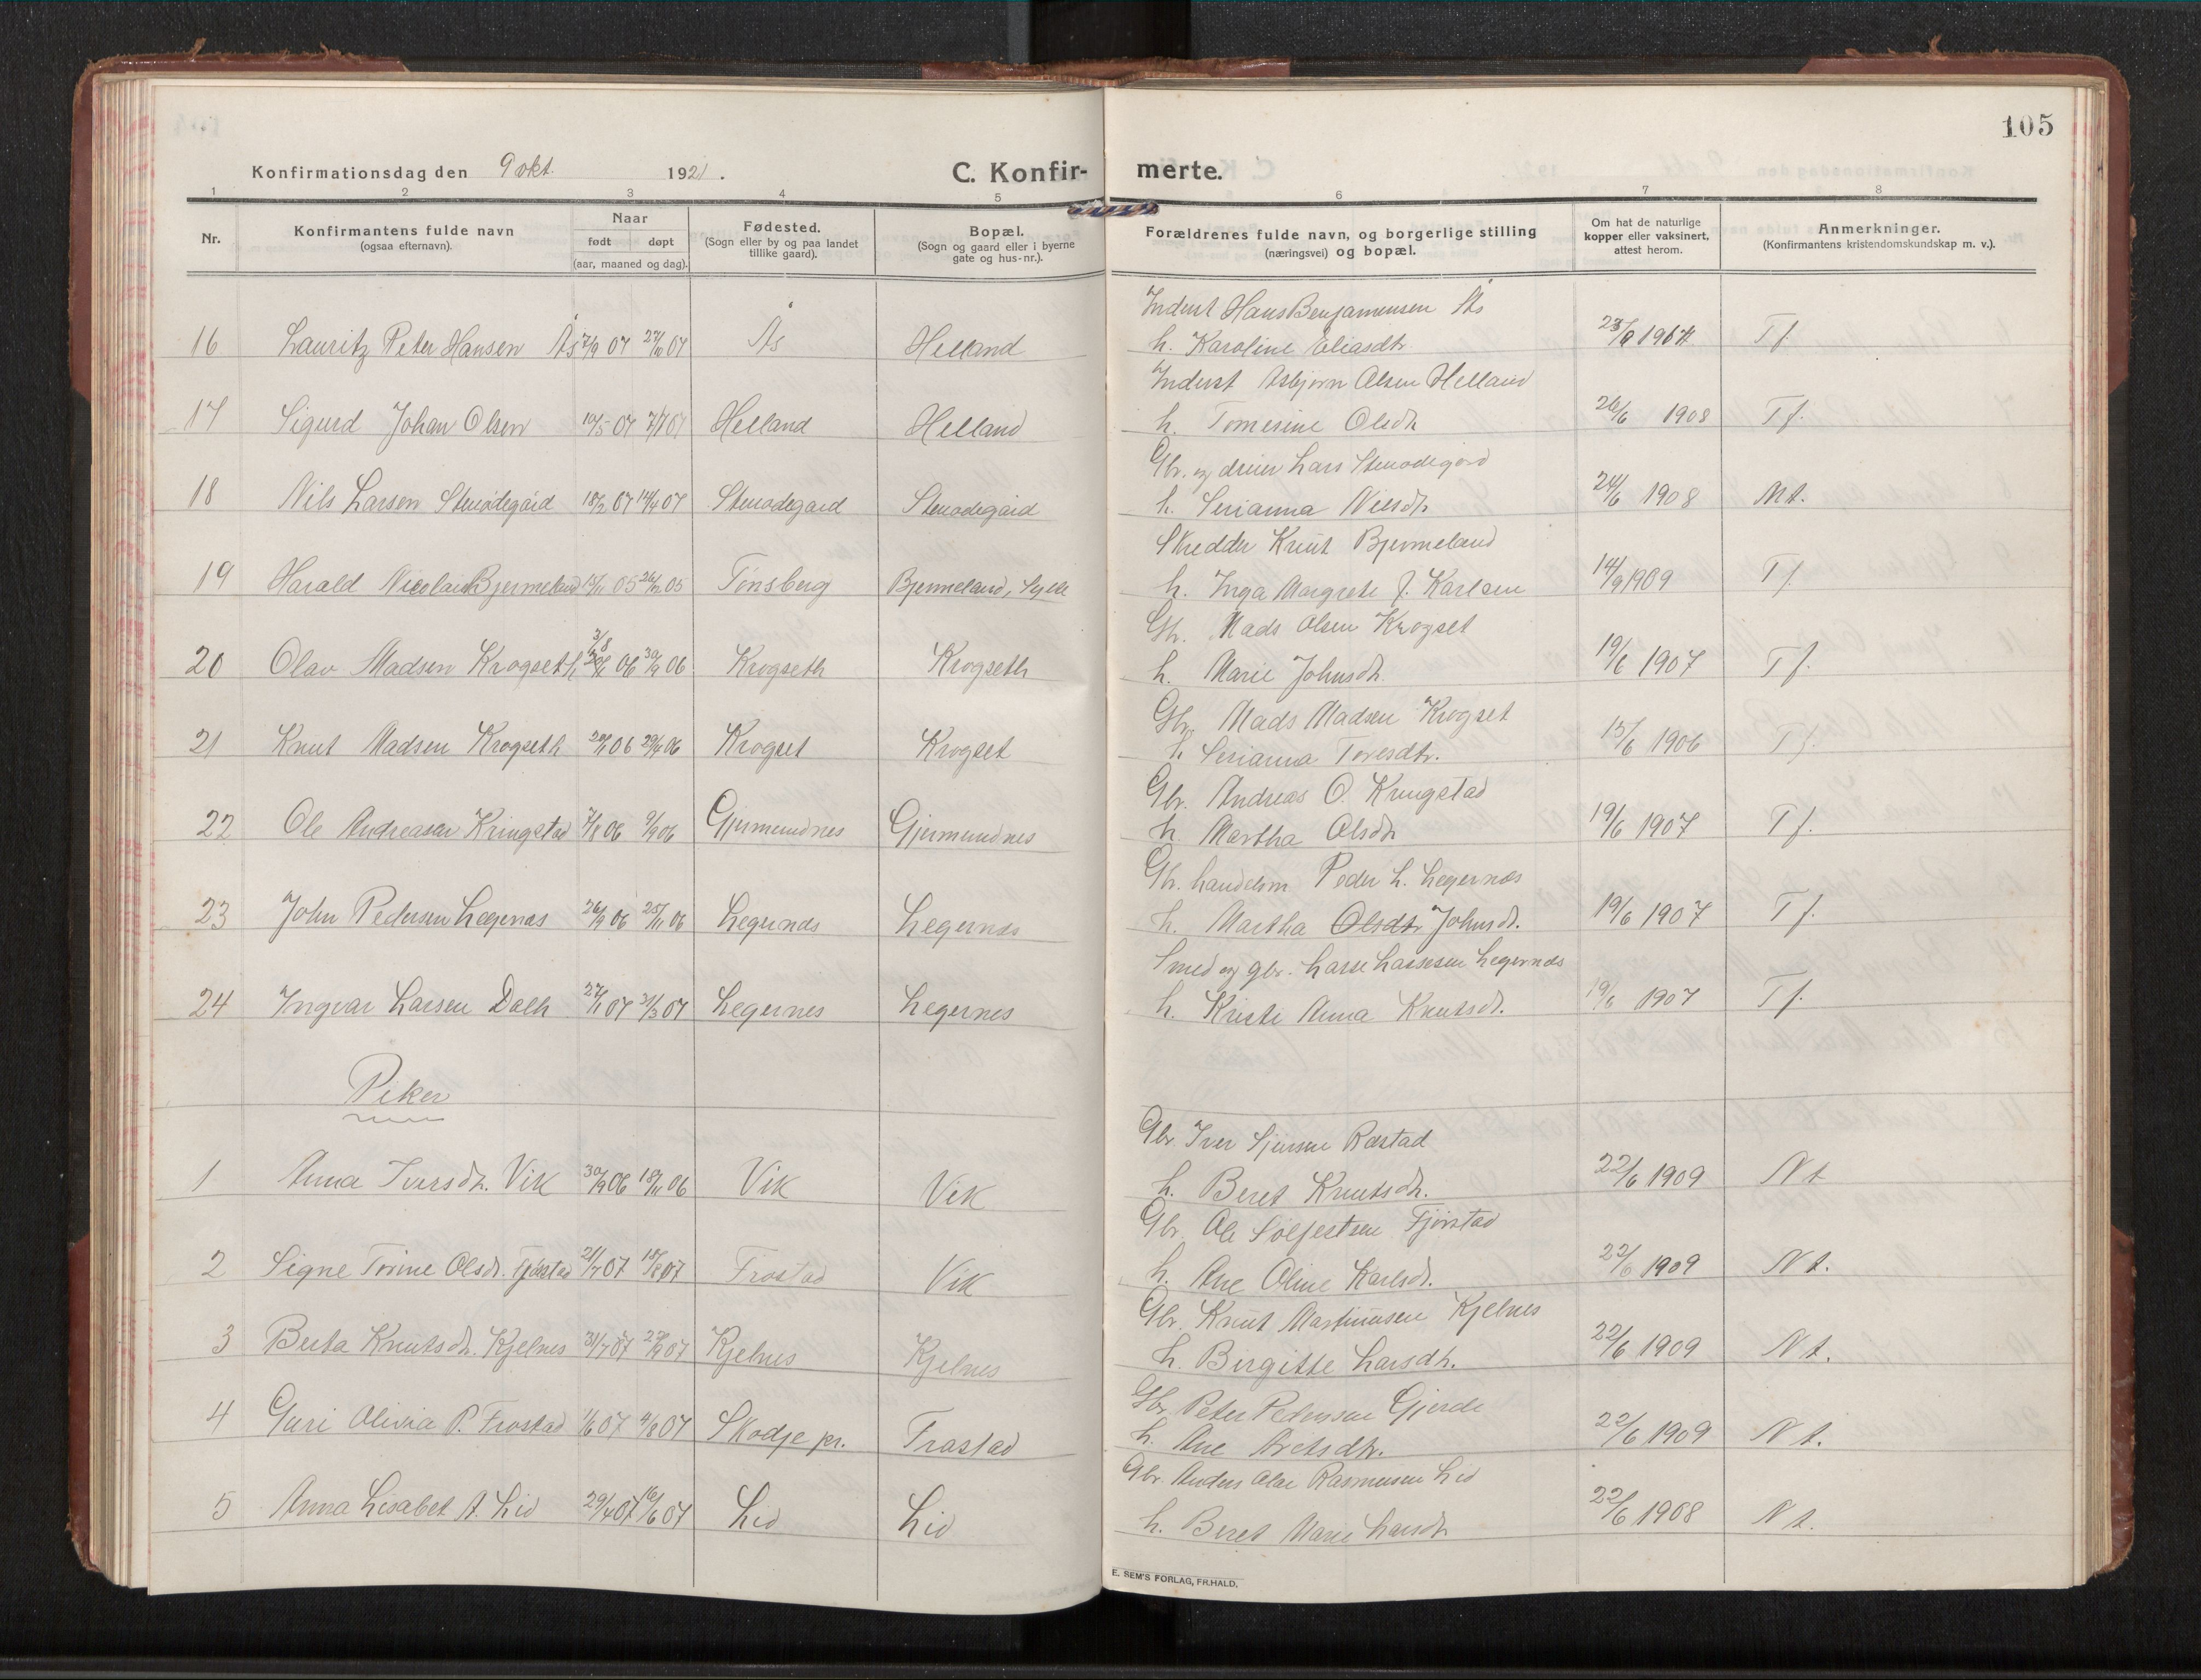 105
Konfirmationsdag den 9 okt. 1921.
C. Konfir- merte.
1 2 3 4 5 6 7 8
Nr.
Konfirmantens fulde navn
(ogsaa efternavn).
Naar
født døpt
(aar, maaned og dag).
Fødested.
(Sogn eller by og paa landet
tillike gaard).
Bopæl.
(Sogn og gaard eller i byerne
gate og hus-nr.).
Forældrenes fulde navn, og borgerlige stilling
(næringsvei) og bopæl.
Om hat de naturlige
kopper eller vaksinert,
attest herom.
Anmerkninger.
(Konfirmantens kristendomskundskap m. v.).
Hans Benjaminsen Ås
16 Lauritz Peter Hansen Ås 07 07 Ås Helland h. Karoline Eliasdtr Tf.
Asbjørn Olsen Helland
17 Sigurd Johan Olsen 19/5 07 7/7 07 Helland Helland h. Tomesine Olsdtr 26/6 1908 Tf.
Gbr. og dreier Lars Stenødegård
18 Nils Larsen Stenødegård 18/2 07 14/4 07 Stenødegaard Stenødegård h. Serianna Nilsdtr 24/6 1908 Mt.
Skredder Knut Bjermeland
19 Harald Nicolai Bjermeland 05 26/12 05 Tønsberg Bjermeland, h. Inga Margrete f. Karlsen 14/9 1909 Tf.
Gbr. Mads Olsen Krogset
20 Olav Madsen Krogseth 3/8 06 30/9 06 Krogseth Krogseth h. Marie Johnsdtr. 19/6 1907 Tf.
Gbr. Mads Madsen Krogset
21 Knut Madsen Krogseth 06 29/4 06 Krogset Krogset h. Serianna Toresdtr. 15/6 1906 Tf.
Gbr. Andreas O. Kringstad
22 Ole Andreasen Kringstad 7/8 06 9/9 06 Gjermundnes Gjermundnes h. Martha Olsdtr 19/6 1907 Tf.
Gbr. handelsm Peder L. Legernæs
23 John Pedersen Legernæs 26/9 06 25/11 06 Legernæs Legernæs h. Martha Olsdtr Johnsdtr. 19/6 1907 Tf.
Smed og gbr. Lasse Lassesen Legernæs
24 Ingvar Larsen Dalh 27/1 07 31/3 07 Legernes Legernes h. Kriste Anna Knutsdtr. 19/6 1907 Tf.
Piker
Gbr. Iver Sjursen Ræstad
1 Anna Iversdtr. Vik 30/9 06 18/11 06 Vik Vik h. Beret Knutsdtr. 22/6 1909 Nt
Gbr. Ole Solfestsen Fjørstad
2 Signe Tomine Olsdtr. Fjørstad 21/7 07 18/8 07 Frostad Vik h. Ane Oline Karlsdtr. 22/6 1909 Nt.
Gbr. Knut Martinusen Kjelnes
3 Berta Knutsdtr. Kjelnes 31/7 07 22/9 07 Kjelnes Kjelnes h. Birgitte Larsdtr. 22/6 1909 Nt.
Gbr. Peter Pedersen Gjerde
4 Guri Olivia P. Frostad 1/6 07 4/8 07 Skodje pr. Frastad h. Ane Aretsdtr. 22/6 1909 Nt.
Gbr. Anders Olai Rasmussen Lid
5 Anna Lisabet A. Lid 29/4 07 16/6 07 Lid Lid h. Beret Marie Larsdtr 22/6 1908 Nt.
E. SEM'S FORLAG, FR.HALD.